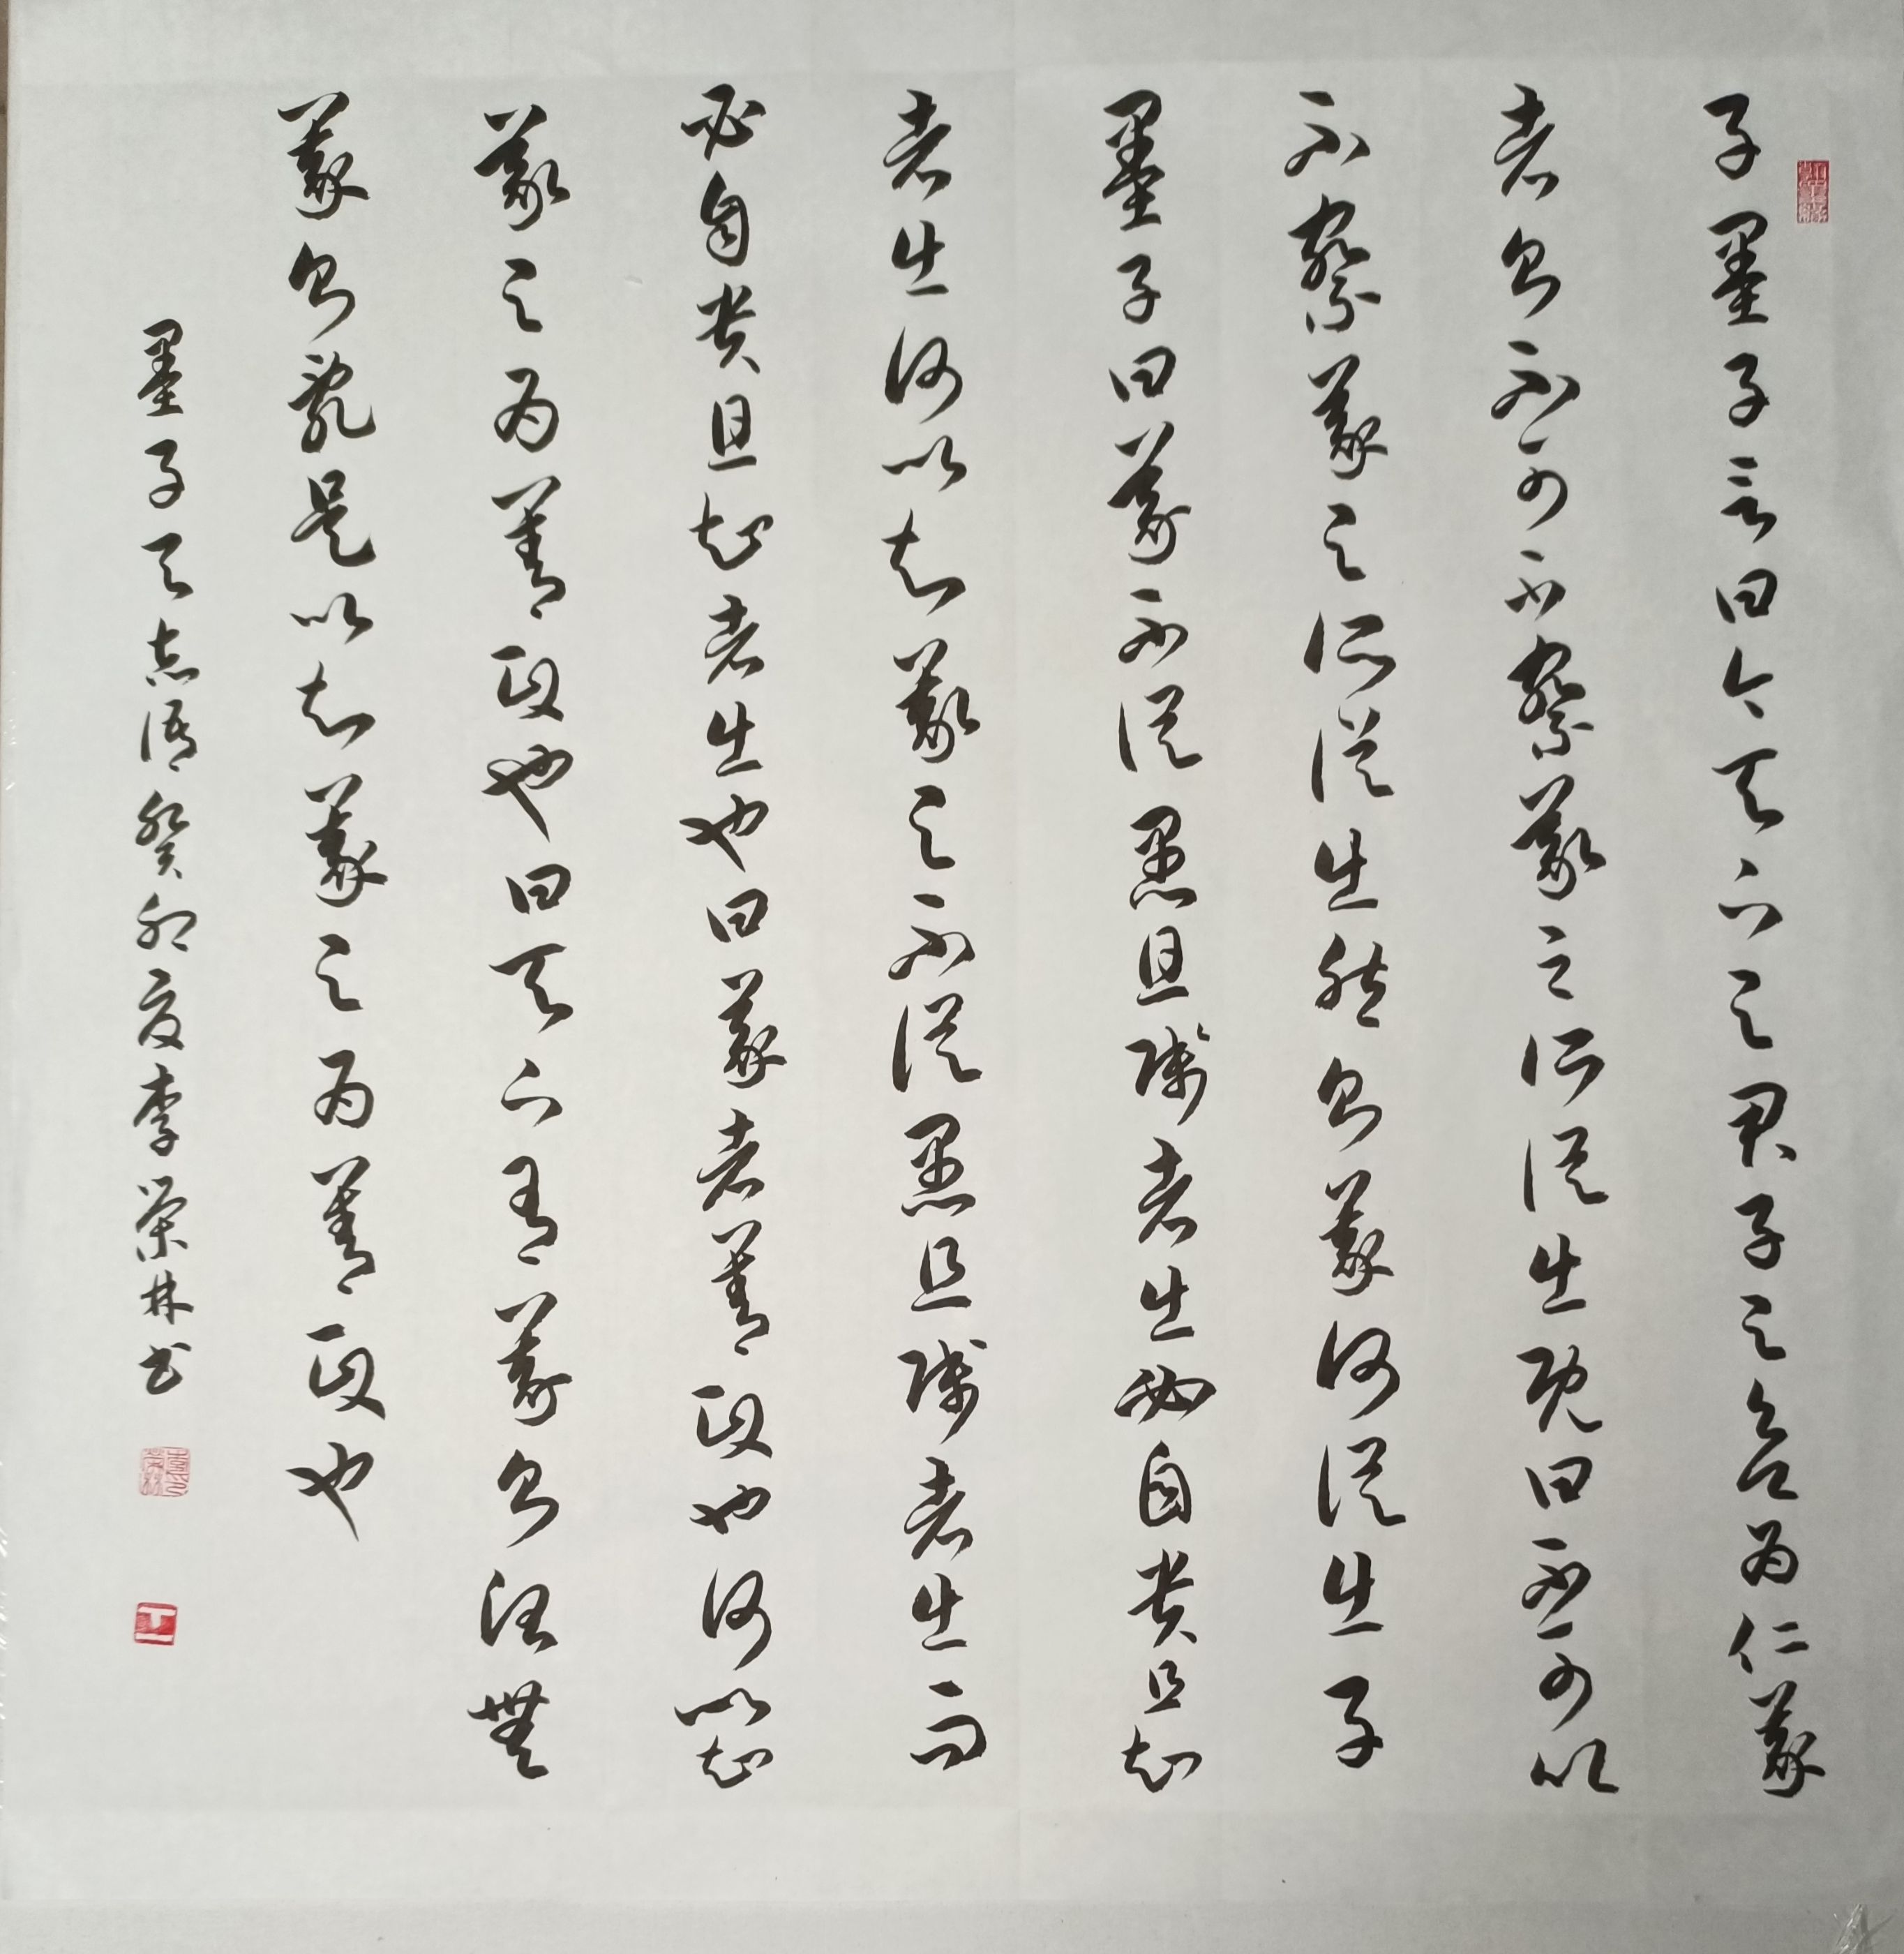 子墨子言曰今天下之君子之欲为仁義
者則不可不察義之所從生既曰不可以
不察義之所從生然則義何從生子
墨子曰義不從愚且賤者生必自貴且知
者生何以知義之不從愚且賤者生而
必自貴且知者生也曰義者善政也何以知
義之为善政也曰天下有義則治無
義則亂是以知義之为善政也
墨子天志語癸卯夏李榮林书